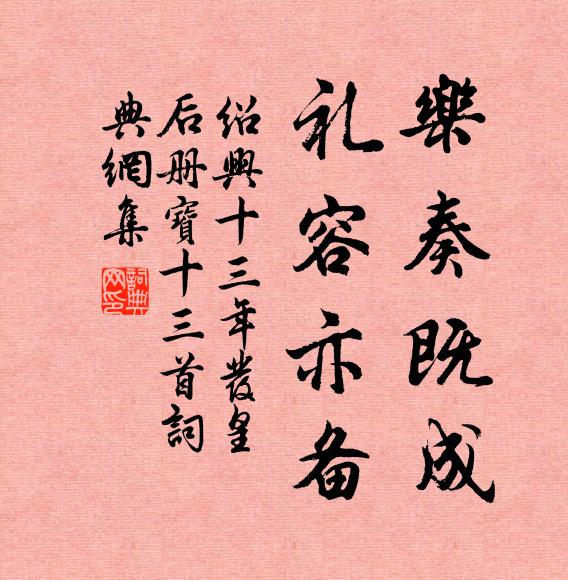 樂奏既成
礼容亦备
绍興十三年發皇
后册寶十三首詞
典網集
詞典網印